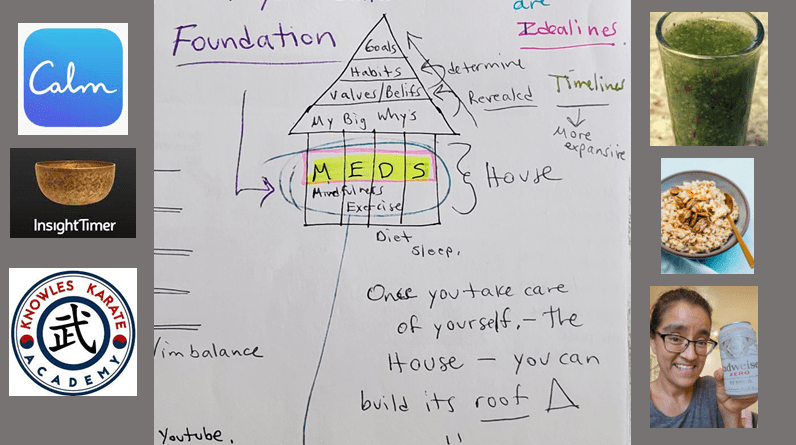 Calm
InsightTimer
KNOWLES KARATE
武
ACADEMY
Foundation
are
Idealines.
Goals
Habits
Values/Belifs
My Big Why's
determine
Revealed
Timelines
More
expansive
M E D S
Mindfulness
Exercise
Diet
Sleep.
House
Once you take care
of yourself. – The
House – you can
build its roof
/imbalance
Youtube.
dweiser
ZERO